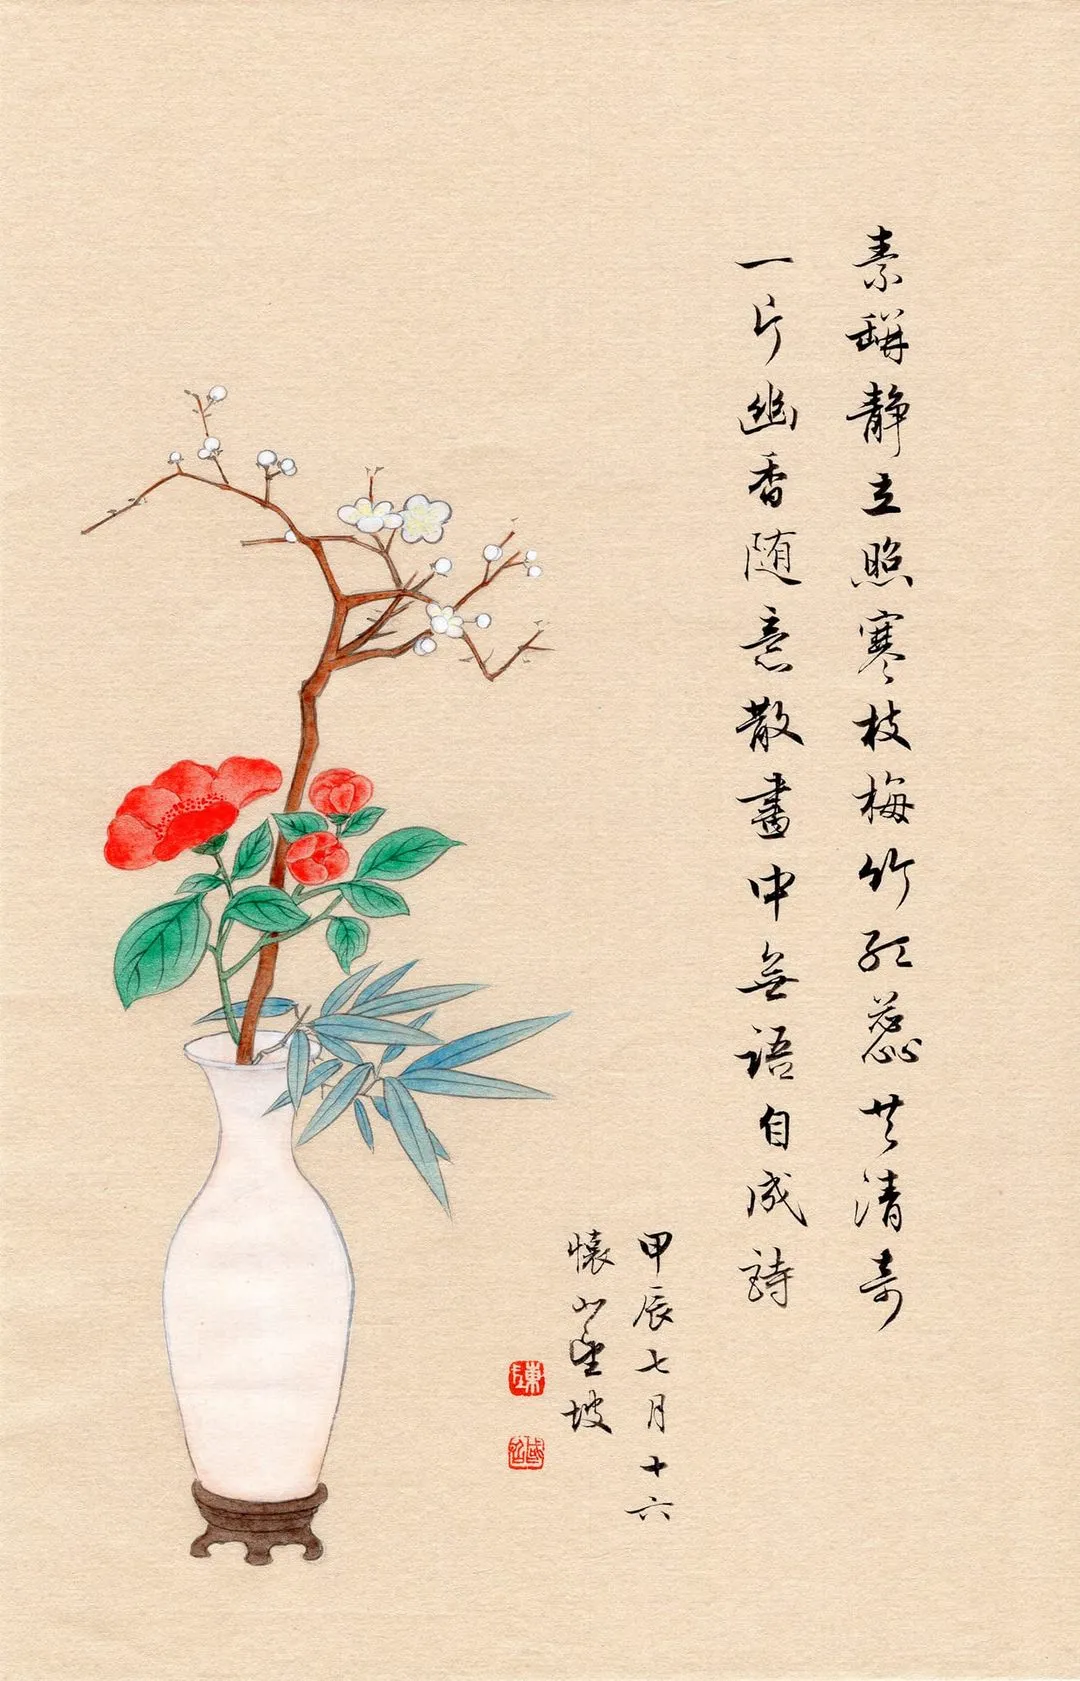 素缾静立照寒枝梅竹红蕊共清奇
一片幽香随意散畫中無语自成詩
甲辰七月十六
懷山望坡
陳